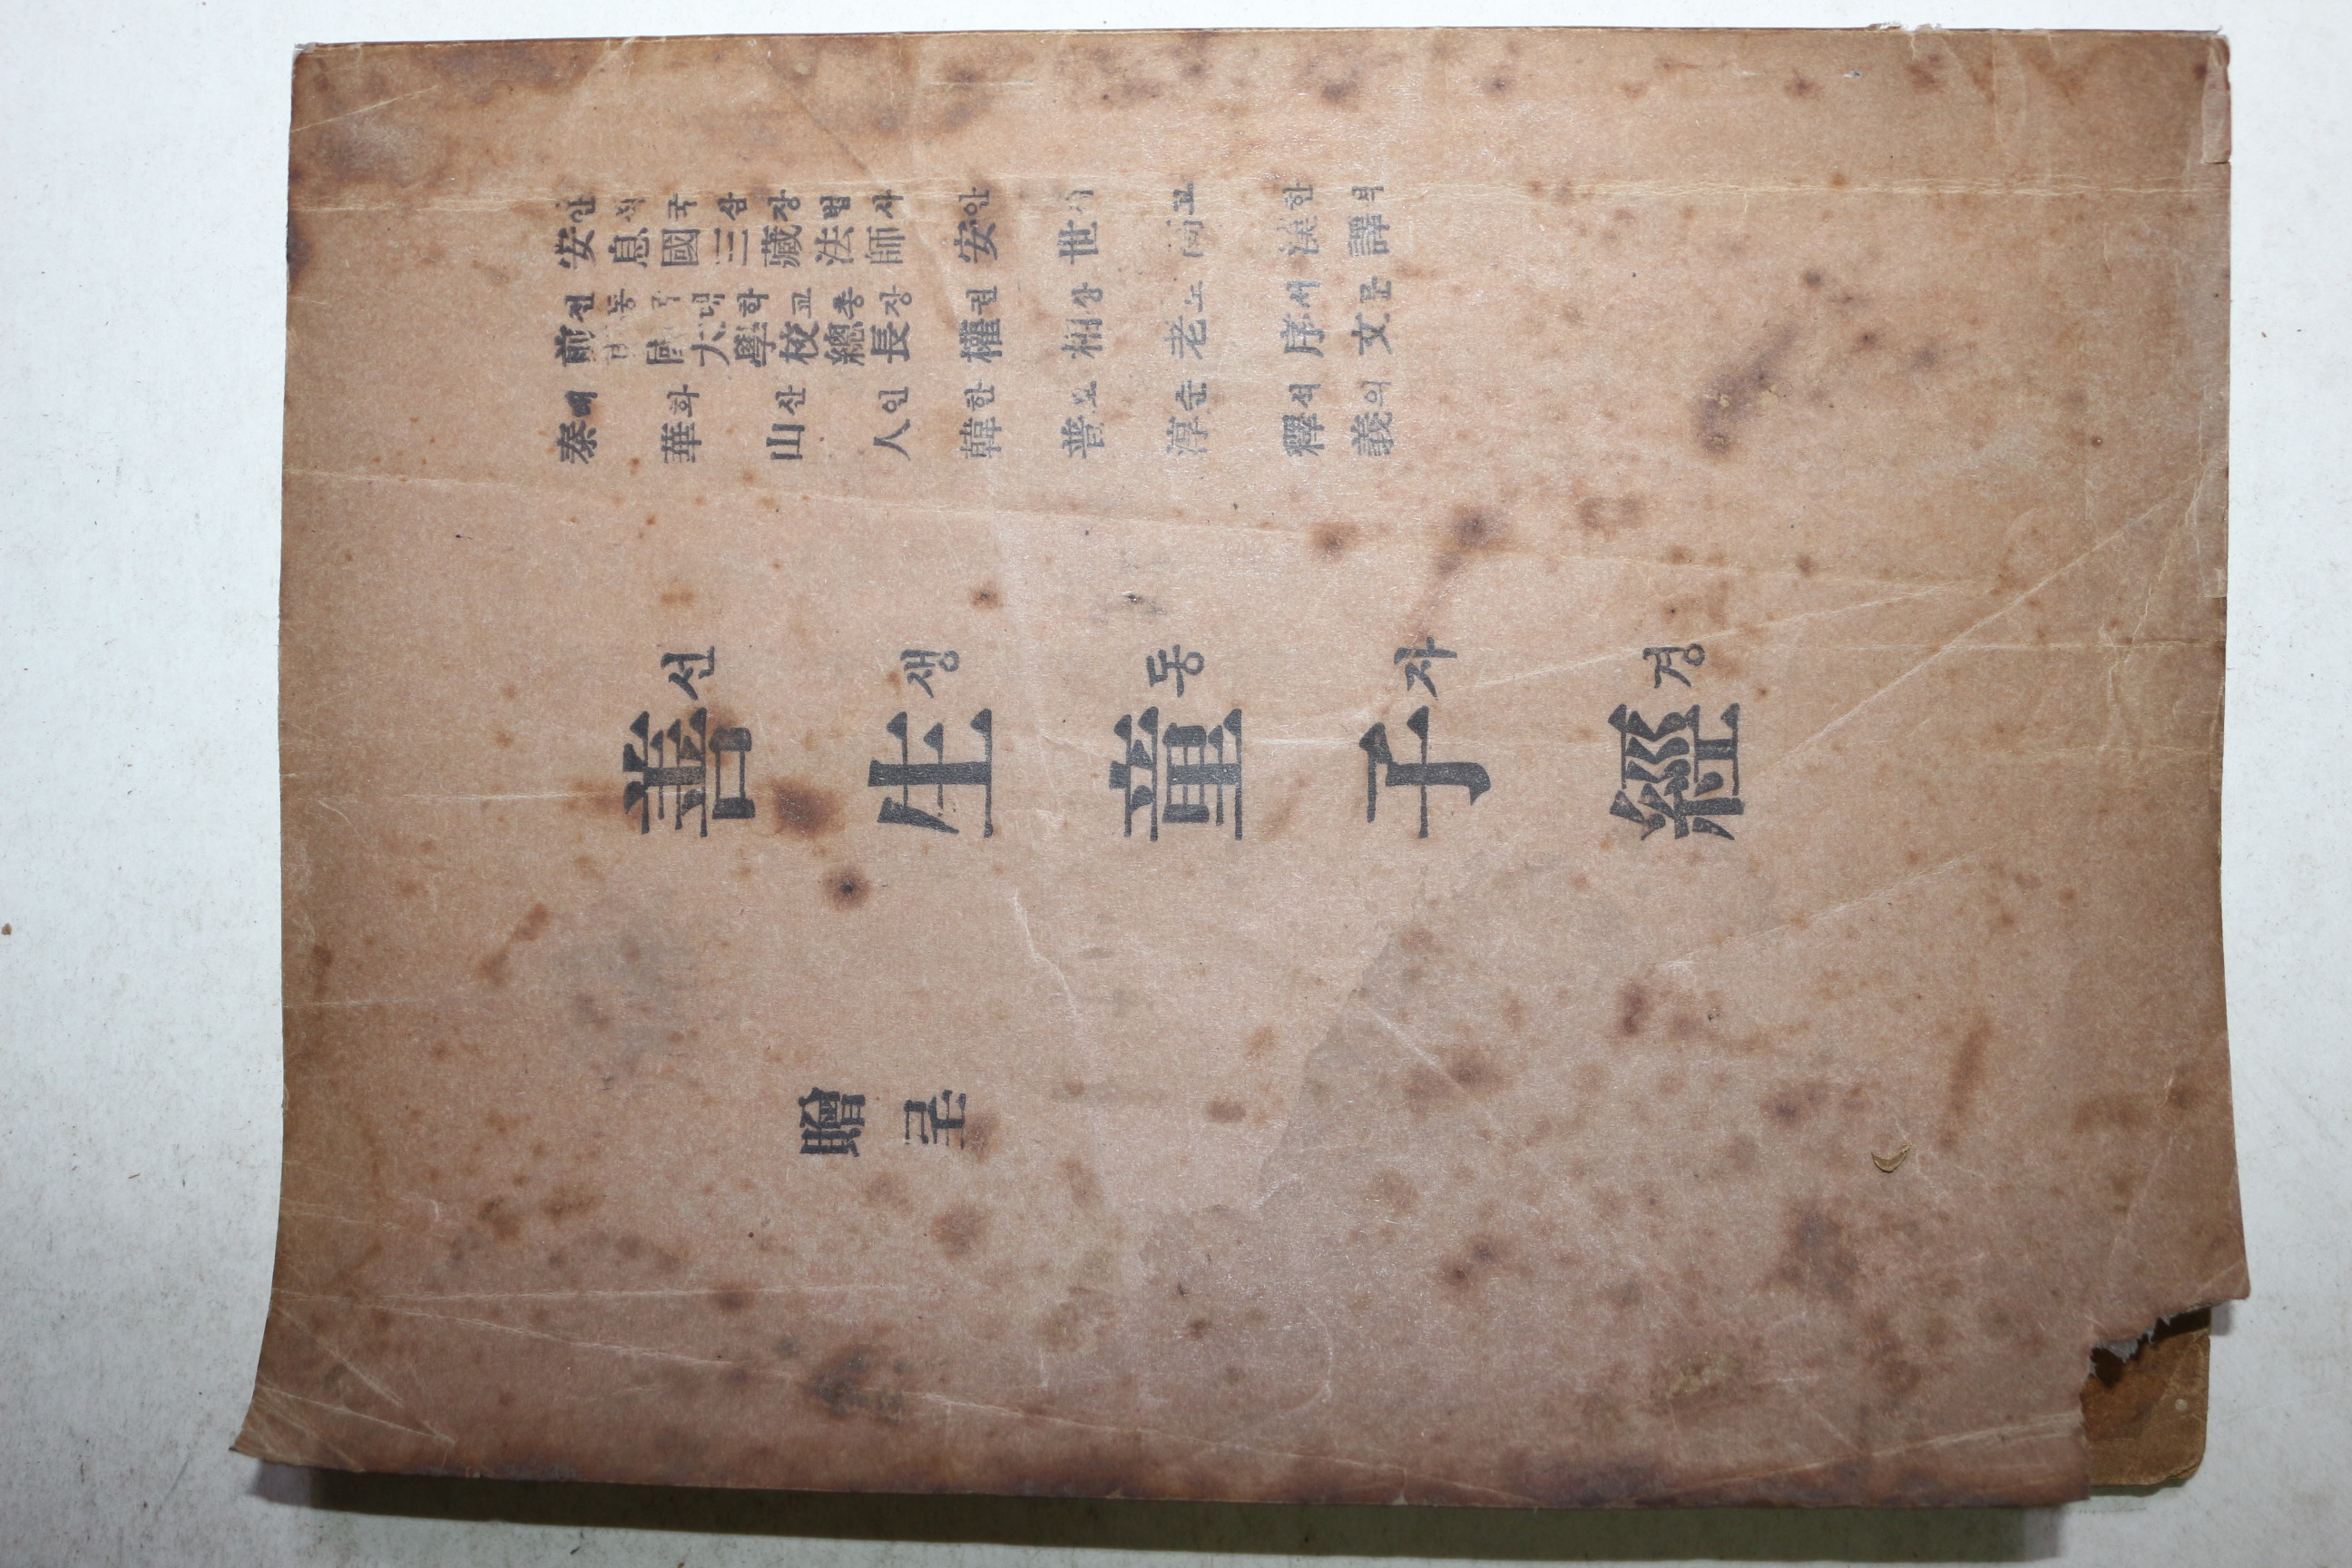 安안息식國국三삼藏장法법師사 安안世세高고 漢한譯역
前전東동國국大대學학校교總총長장 權권相상老노 序서文문
泰태華화山산人인 韓한普보淳순 釋석義의
善선生생童동子자經경
贈呈